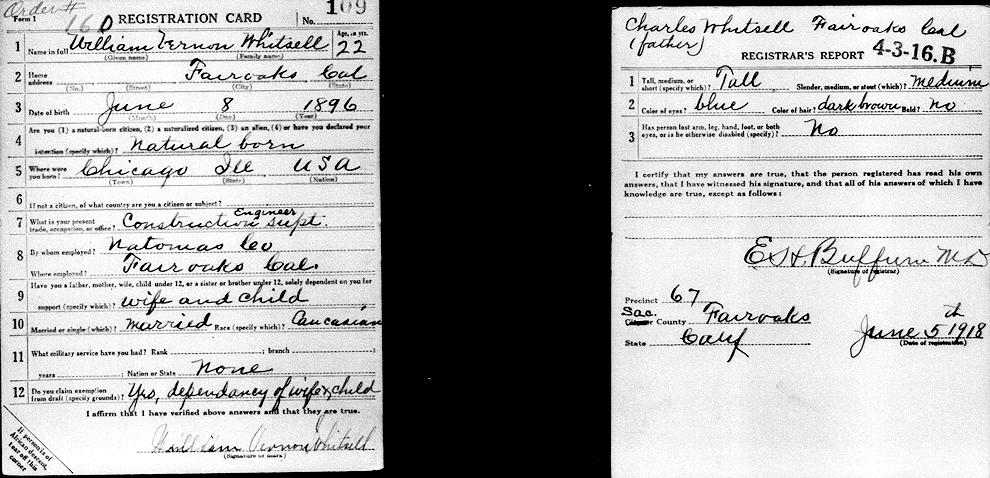 Order #
Form 1
160
REGISTRATION CARD
No. 109
1 Name in full William Vernon Whitsell Age, in yrs. 22
(Given name) (Family name)
2 Home address Fairoaks Cal
(No.) (Street) (City) (State)
3 Date of birth June 8 1896
(Month) (Day) (Year)
Are you (1) a natural-born citizen, (2) a naturalized citizen, (3) an alien, (4) or have you declared your
4 intention (specify which)? Natural born
5 Where were you born? Chicago Ill USA
(Town) (State) (Nation)
6 If not a citizen, of what country are you a citizen or subject?
Engineer
7 What is your present trade, occupation, or office? Construction supt.
8 By whom employed? Natomas Co
Where employed? Fairoaks Cal.
Have you a father, mother, wife, child under 12, or a sister or brother under 12, solely dependent on you for
9 support (specify which)? wife and child
10 Married or single (which)? Married Race (specify which)? Caucasian
11 What military service have you had? Rank ; branch ;
years ; Nation or State None
12 Do you claim exemption from draft (specify grounds)? Yes, dependancy of wife & child
I affirm that I have verified above answers and that they are true.
William Vernon Whitsell
(Signature or mark)
If person is of
African descent,
tear off this
corner
Charles Whitsell Fairoaks Cal
(father)
REGISTRAR'S REPORT 4-3-16.B
1 Tall, medium, or short (specify which)? Tall Slender, medium, or stout (which)? Medium
2 Color of eyes? blue Color of hair? dark brown Bald? No
3 Has person lost arm, leg, hand, foot, or both eyes, or is he otherwise disabled (specify)? No
I certify that my answers are true, that the person registered has read his own
answers, that I have witnessed his signature, and that all of his answers of which I have
knowledge are true, except as follows:
Buffum MD
(Signature of registrar)
Precinct 67
Sac.
City or County Fairoaks
State Calif
June 5th 1918
(Date of registration)